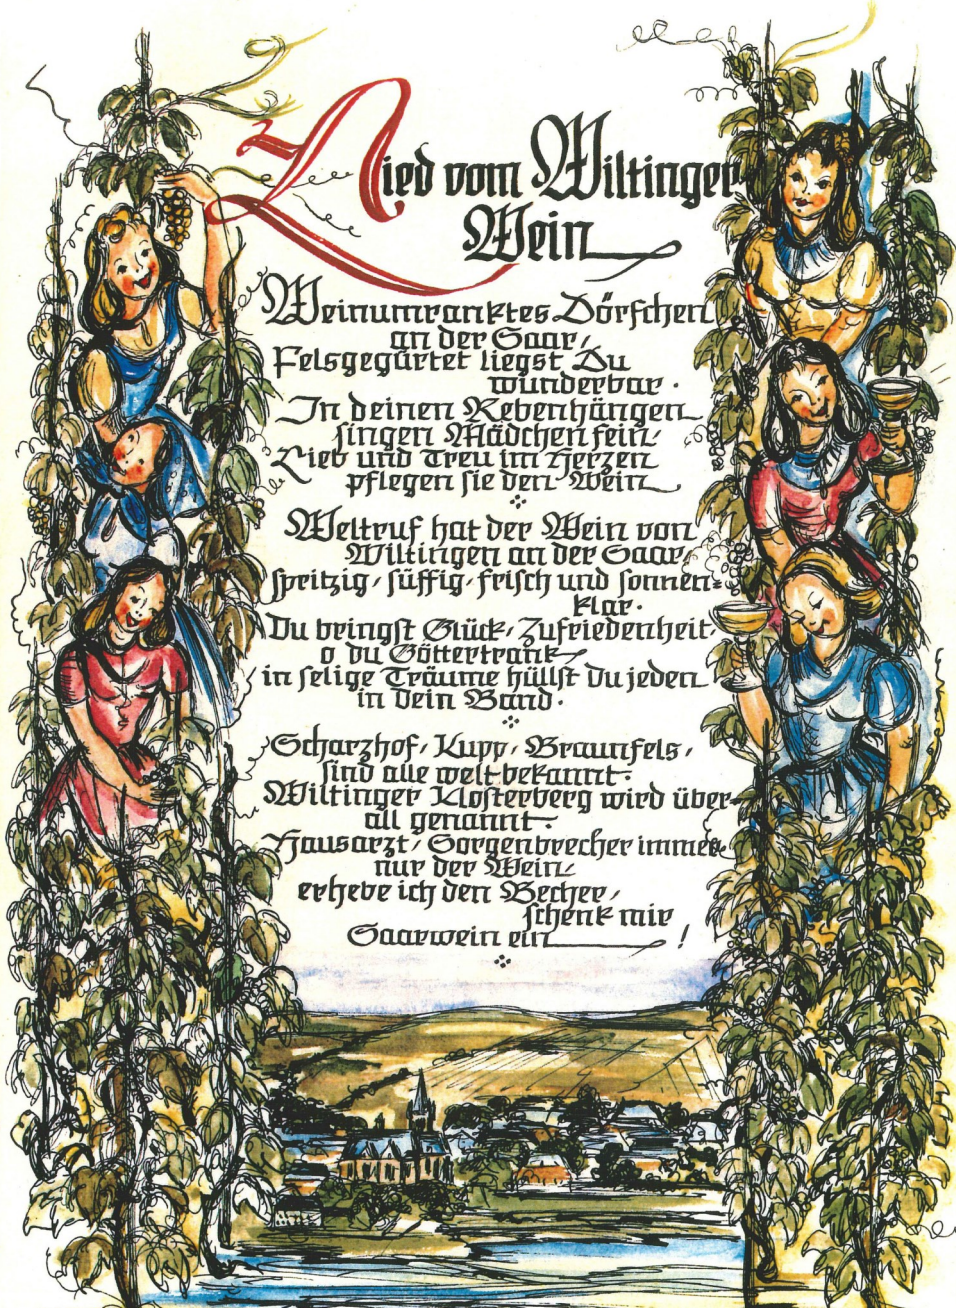 Lied vom Wiltinger
Wein
Weinumranktes Dörfchen
an der Saar,
Felsgegürtet liegst Du
wunderbar.
In deinen Rebenhängen
singen Mädchen fein,
Lieb und Treu im Herzen
pflegen sie den Wein
Weltruf hat der Wein von
Wiltingen an der Saar,
spritzig, süffig, frisch und sonnen=
klar.
Du bringst Glück, Zufriedenheit,
o du Göttertrank,
in selige Träume hüllst du jeden
in dein Band.
Scharzhof, Kupp, Braunfels,
sind alle weltbekannt.
Wiltinger Klosterberg wird über-
all genannt.
Hausarzt, Sorgenbrecher immer
nur der Wein,
erhebe ich den Becher,
schenk mir
Saarwein ein!